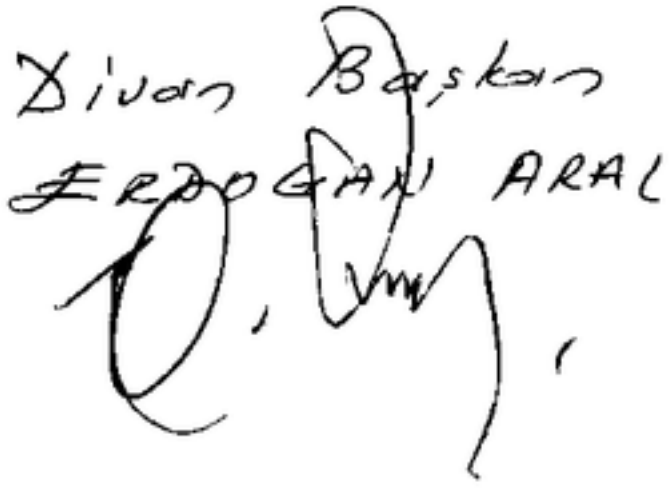 Divan Başkan
ERDOGAN ARAL